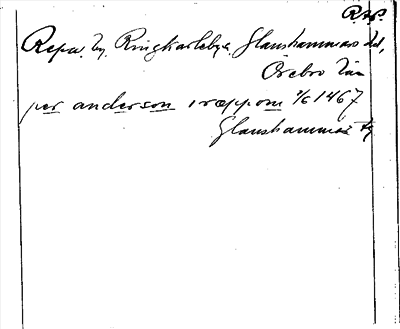 R.A.P.
Repa. by. Ringkarleby s. Glanshammars hd,
Örebro län
per anderson i ræppom 3/6 1467
Glanshammars tg